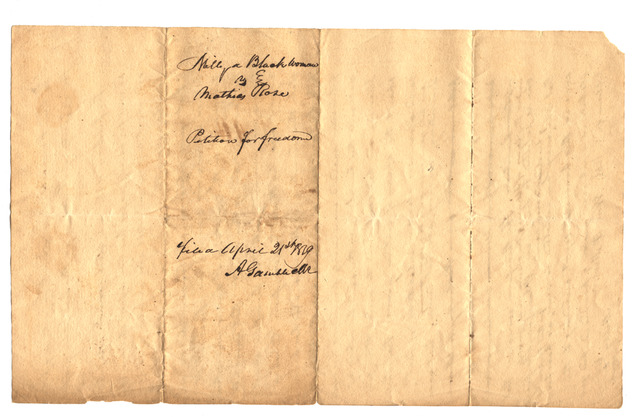 Nelly a Black Woman
vs
Mathias Rose
Petition for freedom
filed April 21st 1819
A Gamble Clk